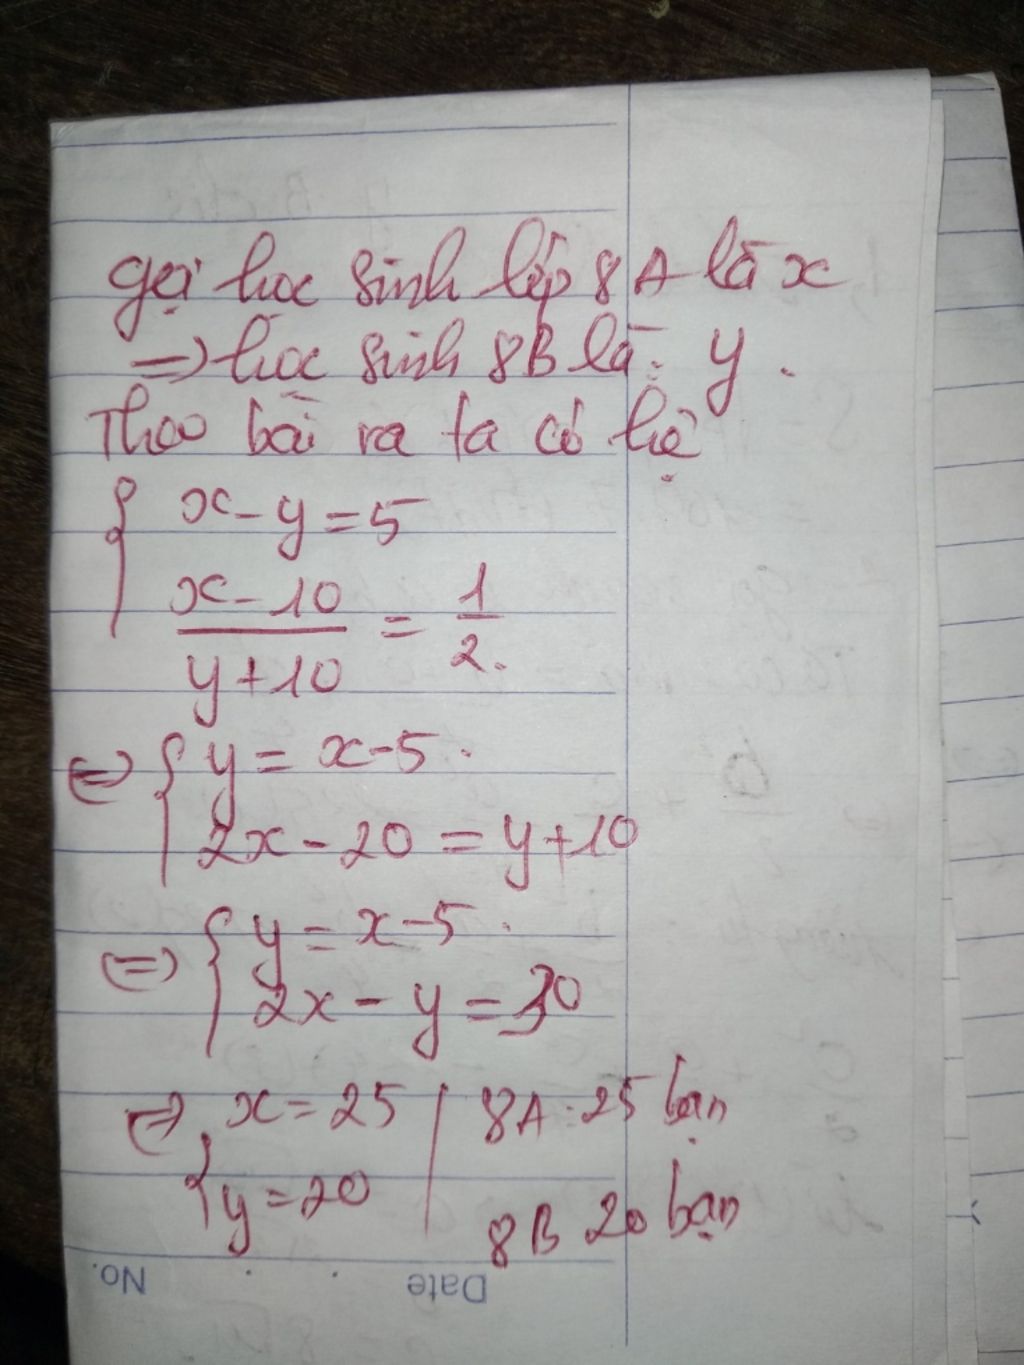 gọi học sinh lớp 8A là x
=> học sinh 8B là: y.
Theo bài ra ta có hệ
{ x - y = 5
x - 10 / y + 10 = 1 / 2.
<=> { y = x - 5.
2x - 20 = y + 10
<=> { y = x - 5.
2x - y = 30
<=> { x = 25 | 8A: 25 bạn
y = 20 | 8B 20 bạn
No. Date